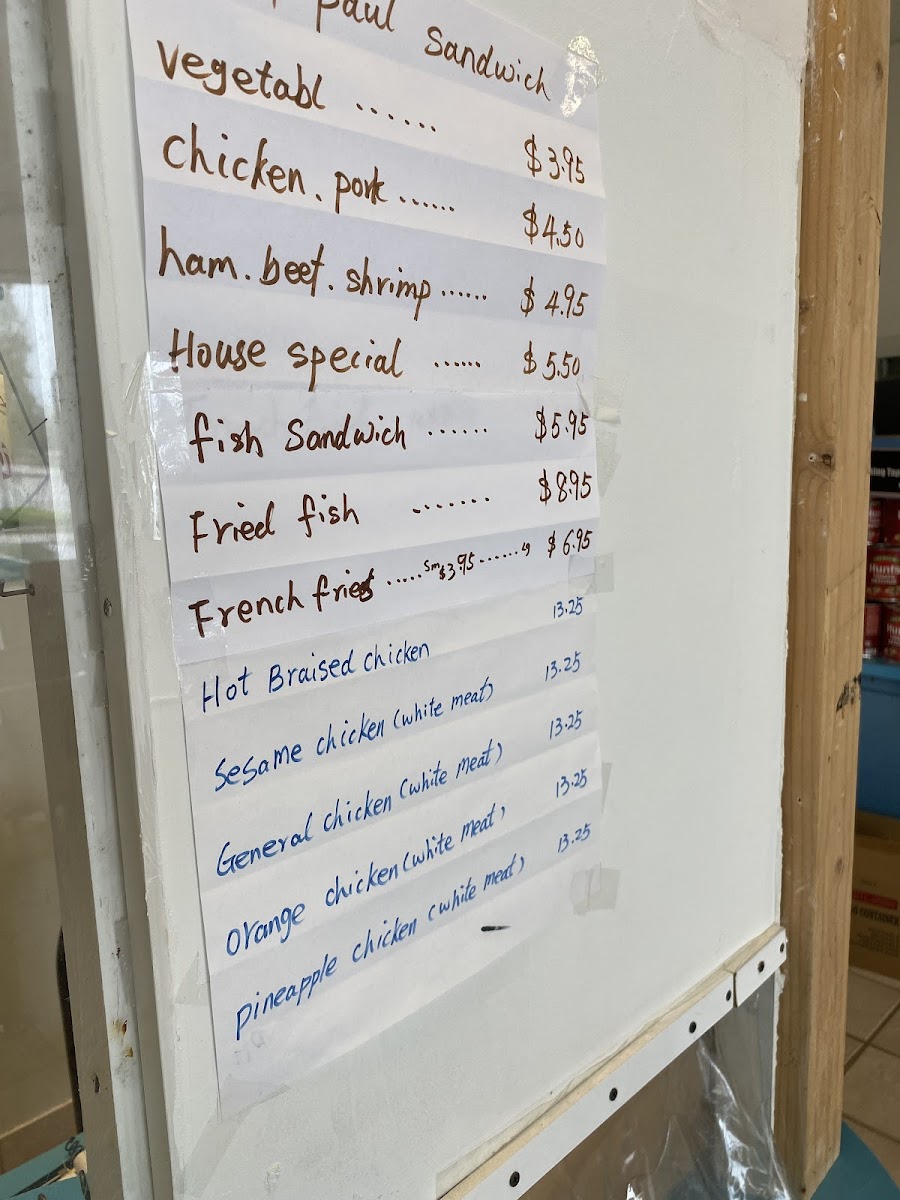 paul Sandwich
Vegetabl ...... $3.95
chicken. pork ...... $4.50
ham. beef. shrimp ...... $4.95
House special ...... $5.50
fish Sandwich ...... $5.95
Fried fish ....... $8.95
French fries ..... Sm $3.95 ...... lg $6.95
Hot Braised chicken 13.25
Sesame chicken (white meat) 13.25
General chicken (white meat) 13.25
Orange chicken (white meat) 13.25
pineapple chicken (white meat) 13.25
Hunt's